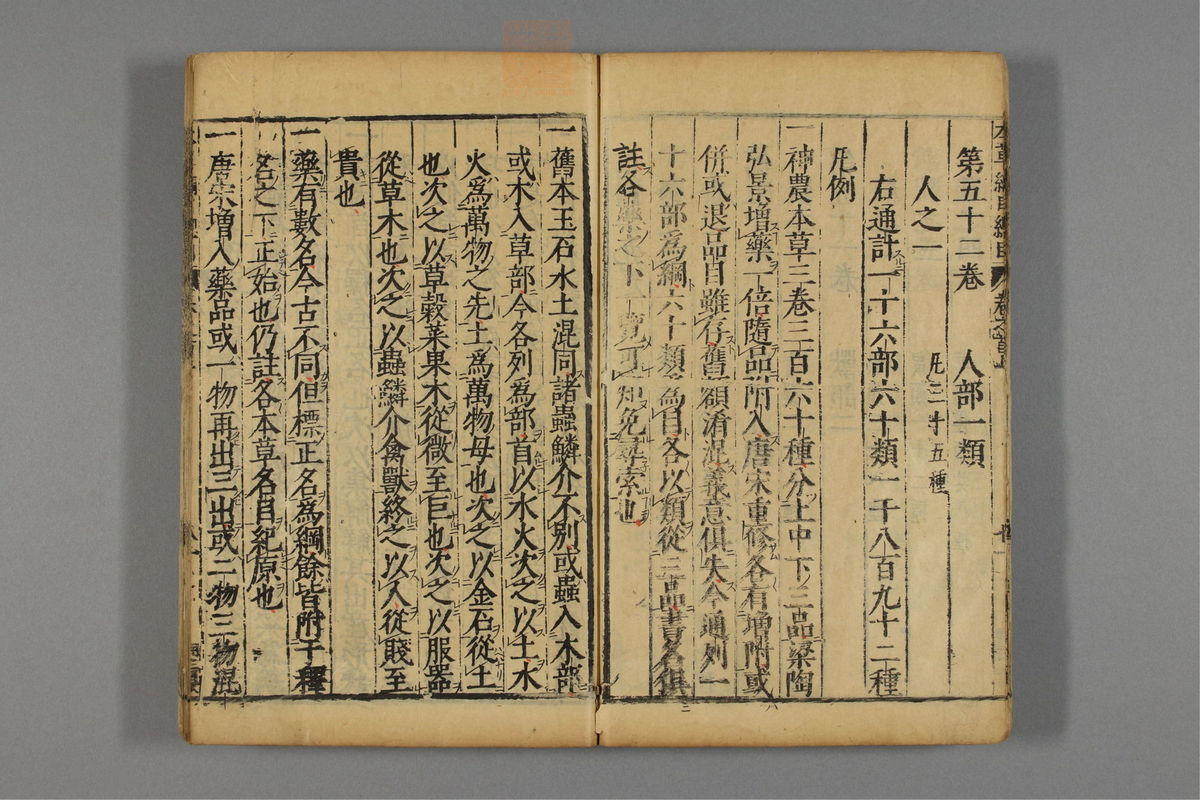 第五十二卷 人部一類
人之一 凡三十五種
右通計一十六部六十類一千八百九十二種
凡例
一神農本草三卷三百六十種分上中下三品梁陶
弘景增藥一倍隨品附入唐宋重修各有增附或
併或退品目雖存舊額淆混義意俱失今通列一
十六部為綱六十類為目各以類從三品書名俱
註各藥之下一覽可知免尋索也
一舊本玉石水土混同諸蟲鱗介不別或蟲入木部
或木入草部今各列為部首以水火次之以土水
火為萬物之先土為萬物母也次之以金石從土
也次之以草穀菜果木從微至巨也次之以服器
從草木也次之以蟲鱗介禽獸終之以人從賤至
貴也
一藥有數名今古不同但標正名為綱餘皆附于釋
名之下正始也仍註各本草名目紀原也
一唐宋增入藥品或一物再出三出或二物三物混